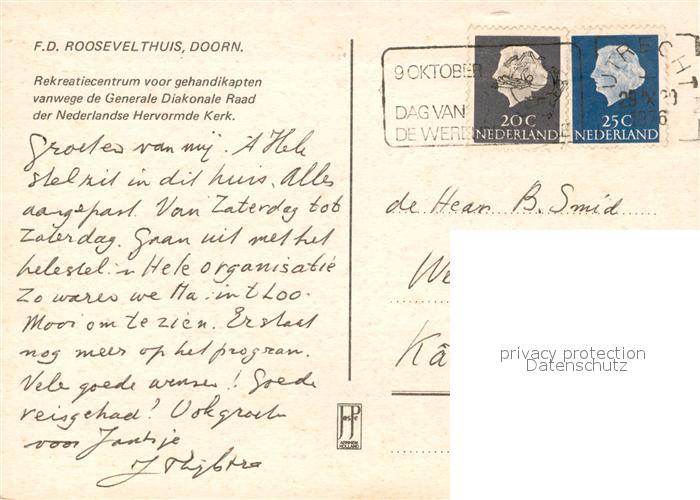 F.D. ROOSEVELTHUIS, DOORN.
Rekreatiecentrum voor gehandikapten
vanwege de Generale Diakonale Raad
der Nederlandse Hervormde Kerk.
Groeten van mij. A Hele
stel zit in dit huis. Alles
aangepast. Van Zaterdag tot
Zaterdag. Gaan uit met het
hele stel. n Hele organisatie
Zo waren we Ma. in t Loo.
Mooi om te zien. Er staat
nog meer op het program.
Vele goede wensen! Goede
reis gehad? Ook groeten
voor Jantsje
J
9 OKTOBER
DAG VAN
DE WERE
UTRECHT
1976
20 C
NEDERLAND
25 C
NEDERLAND
de Heer B. Smid
We
Kâ
JosPe
ARNHEM
HOLLAND
privacy protection
Datenschutz